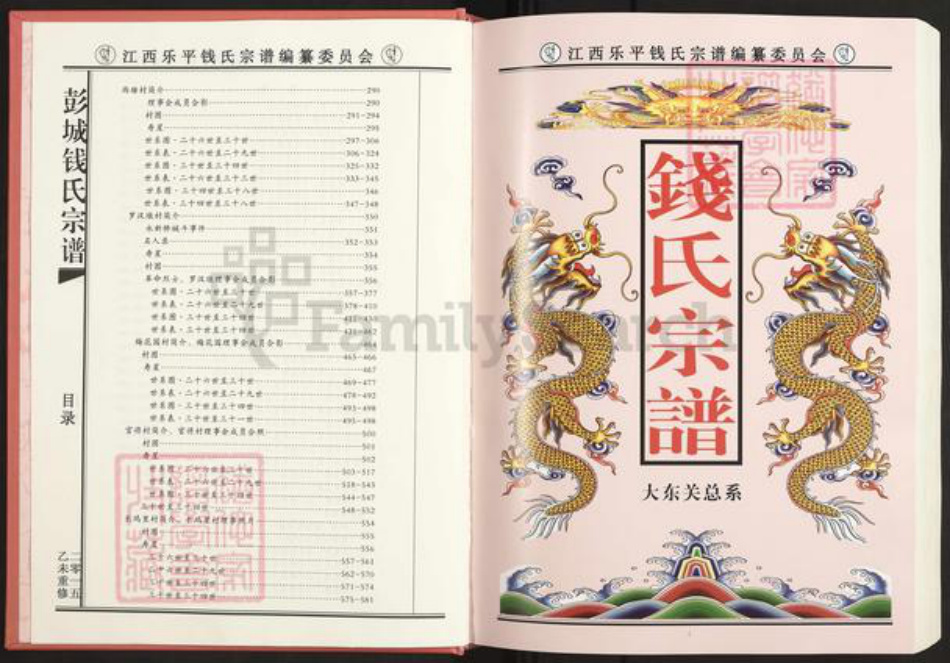 江西乐平钱氏宗谱编纂委员会
彭城钱氏宗谱
目录
二零一五
乙未重修
雨塘村简介 290
理事会成员合影 290
村图 291-294
寿星 295
世系图·二十六世至三十世 297-306
世系表·二十六世至二十九世 306-324
世系图·三十世至三十四世 325-332
世系表·二十六世至三十三世 333-345
世系图·三十四世至三十八世 346
世系表·三十四世至三十八世 347-348
罗汉墩村简介 350
永新桥械斗事件 351
名人录 352-353
寿星 354
村图 355
革命烈士、罗汉墩理事会成员合影 356
世系图·二十六世至三十世 357-377
世系表·二十六世至二十九世 378-410
世系图·三十世至三十四世
世系表·三十世至三十四世 421-462
梅花园村简介、梅花园理事会成员合影 464
村图 465-466
寿星 467
世系图·二十六世至三十世 469-477
世系表·二十六世至二十九世 478-492
世系图·三十世至三十四世 493-498
世系表·三十世至三十一世 495-498
官将村简介、官将村理事会成员合照 500
村图 501
寿星 502
世系图·二十六世至三十世 503-517
世系表·二十六世至二十九世 518-543
世系图·三十世至三十四世 544-547
三十世至三十四世 548-552
554
村图 555
寿星 556
二十六世至三十世 557-561
二十六世至二十九世 562-570
三十世至三十四世 571-574
三十世至三十四世 575-581
江西乐平钱氏宗谱编纂委员会
錢氏宗譜
大东关总系
FamilySearch